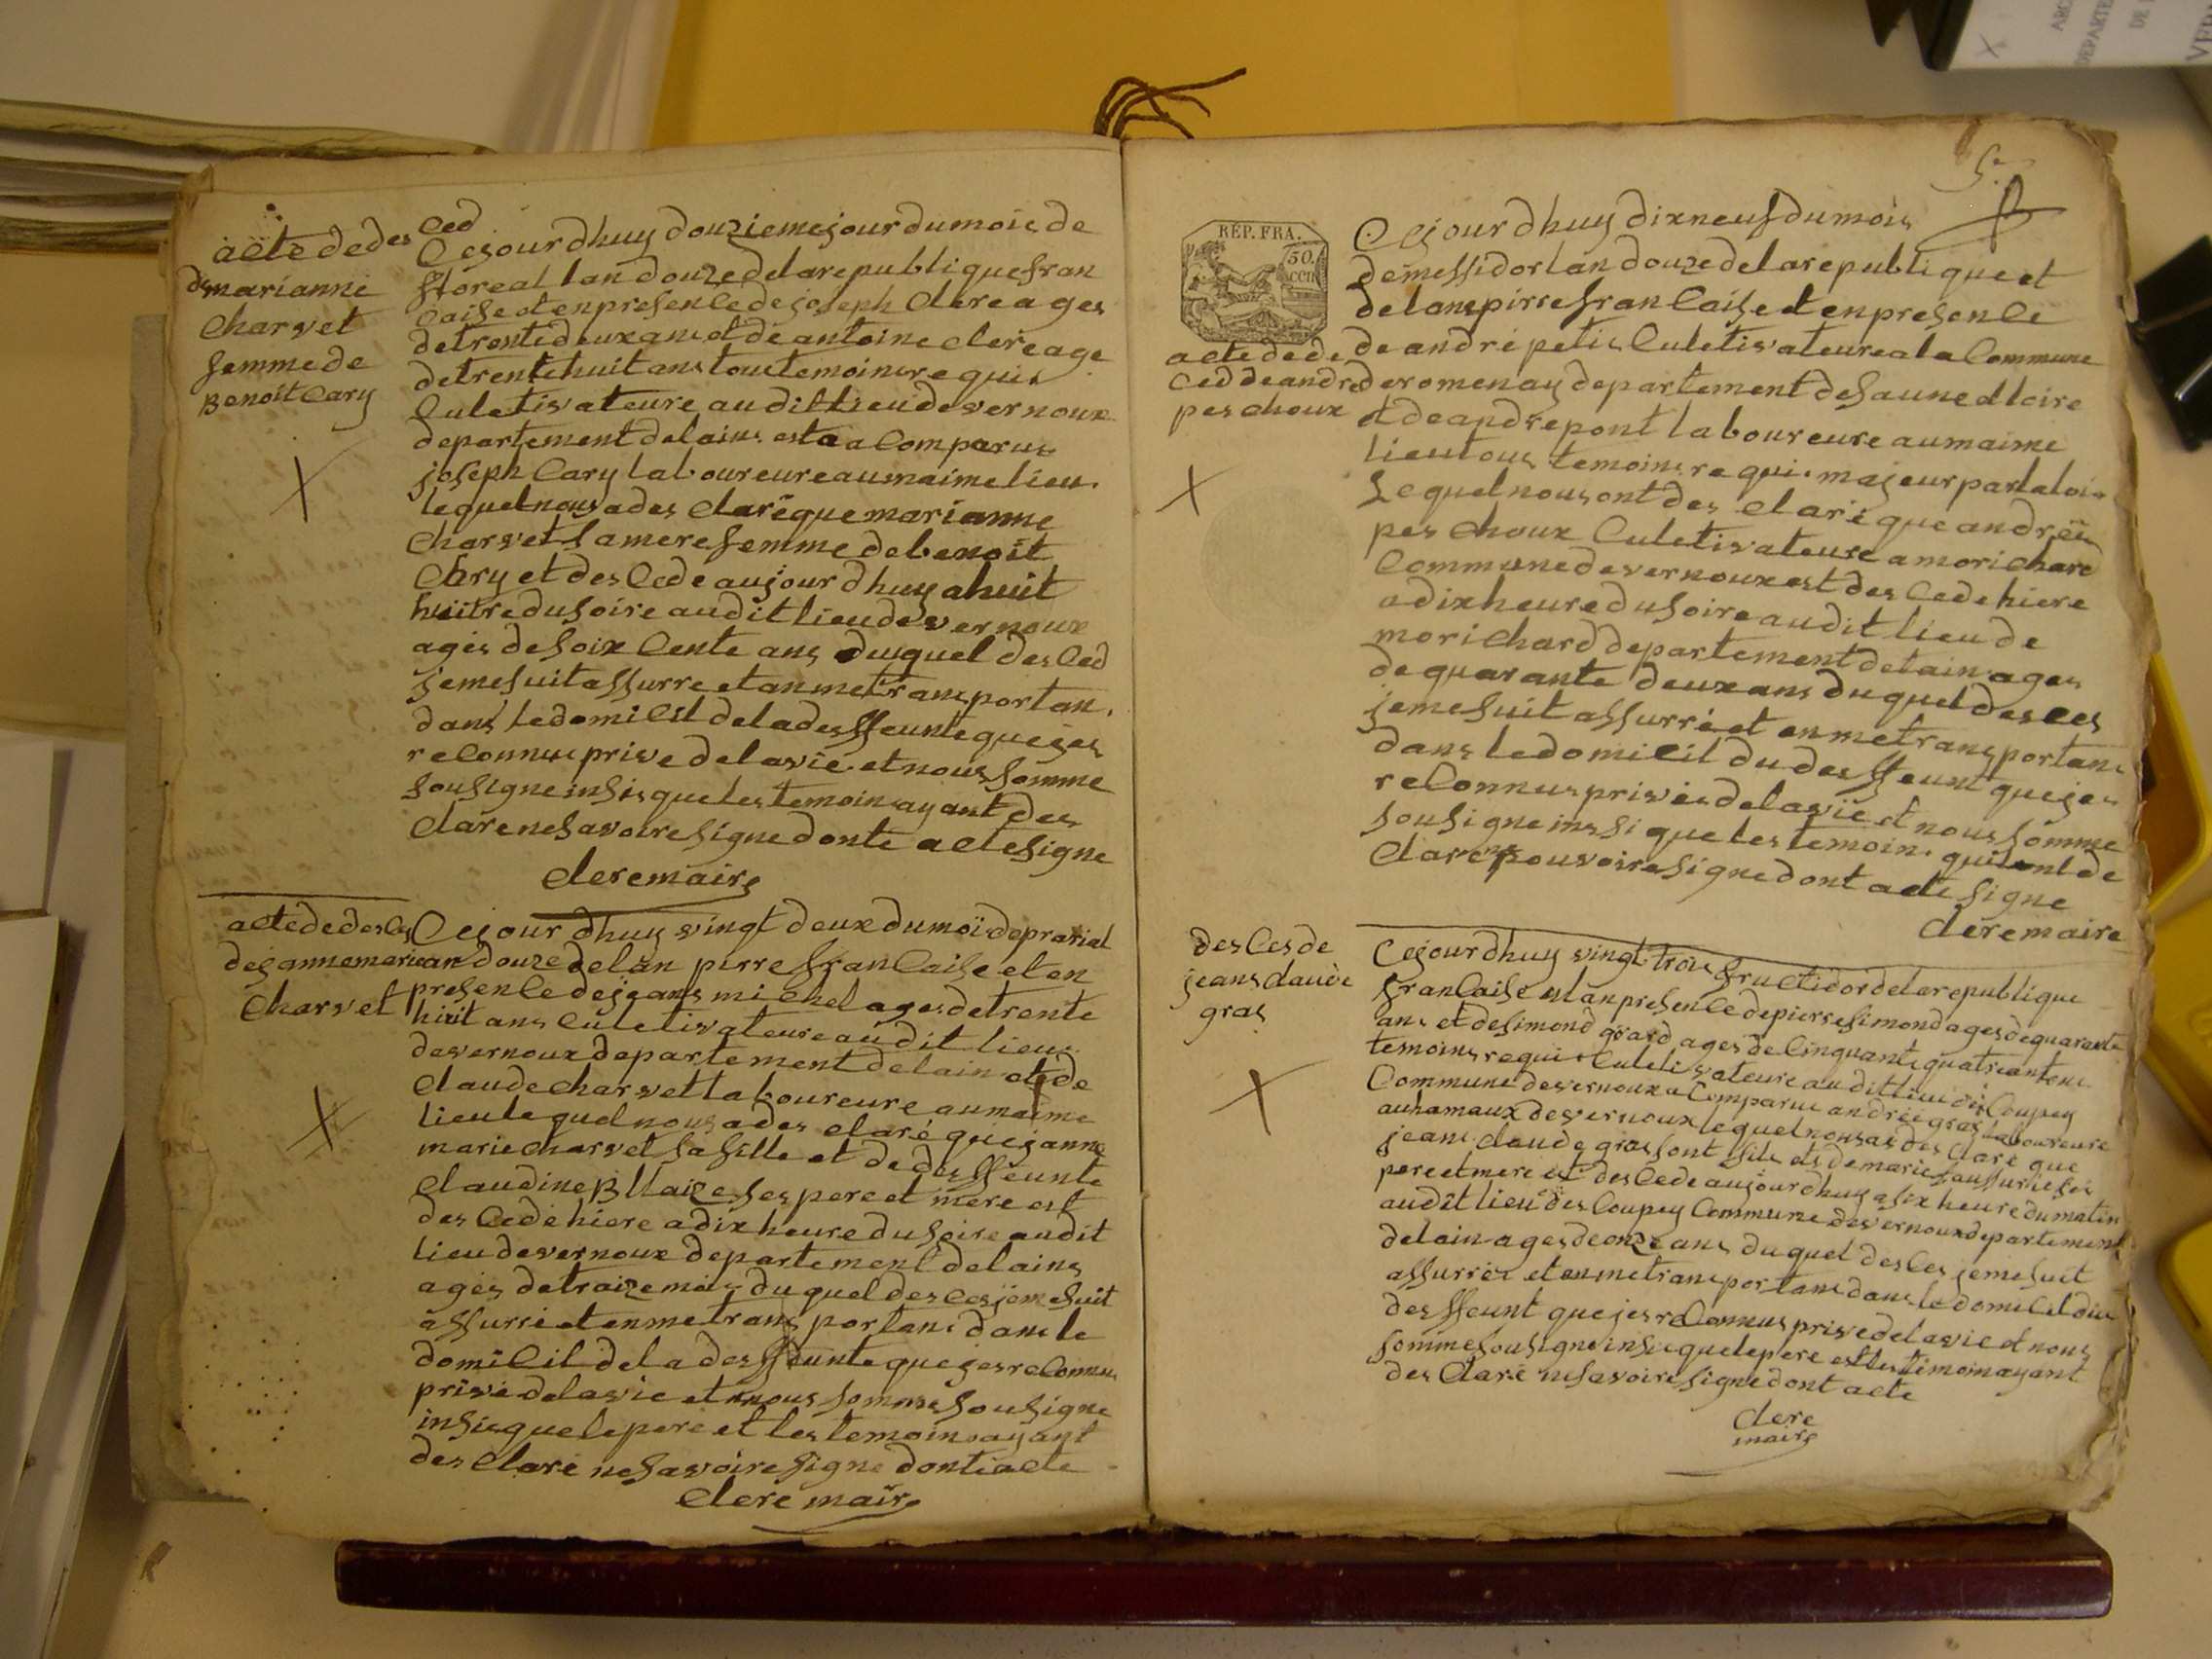 acte de des
ced
de marianne
charvet
femme de
Benoit Cary
Ce jour dhuy douzieme jour du mois de
floreal lan douze de la republique fran
caise et en presence de joseph clere ages
de trente deux ans et de antoine clere age
de trente huit ans tous temoins requis
culetivateure au dit lieu de vernoux
departement de lains esta a comparus
joseph Cary laboureure au maime lieu
lequel nous a des claré que marianne
charvet sa mere femme de benoit
Cary et des cede aujour dhuy a huit
huitre du soire au dit lieu de vernoux
agés de soix cente ans duquel des ced
je me suit assurre et an metransportan
dans le domicil de la des ffeunte que jes
reconnus prive de la vie et nous somme
sousigne insis que les temoin ayant des
clare ne savoire signe donte acte signe
clere maire
acte de des ces
de janne marie
charvet
Ce jour dhuy vingt deux du moi de prarial
an douze de lan pirre francaise et en
presence de jeans michel ages de trente
huit ans culetivateure au dit lieu
de vernoux departement de lain et de
claude charvet laboureure au maime
lieu lequel nous a des claré que janne
marie charvet sa fille et de des ffeunte
claudine Bllaize ses pere et mere est
des cede hiere a dix heure du soire au dit
lieu de vernoux departement de lains
agés de traize mois du quel des ces je me suit
assurré et en metrans portans dans le
domicil de la des ffeunte que jes reconnu
privé de la vie et nous somme sousigne
insis que le pere et les temoins ayant
des claré ne savoire signe dont acte
clere maire
5.
RÉP. FRA.
50.
CCII
acte de de
ced de andre
peschoux
Ce jour dhuy dix neuf du mois
de messidor lan douze de la republique et
de lans pirre francaise et en presence
de andré petis culetivateure a la commune
de romenay departement de saune et loire
et de andre pont laboureure au maime
lieu tous temoins requis majeur par la loi
lequel nous ont des claré que andré
peschoux culetivateure a morichard
commune de vernoux est des cede hiere
a dix heure du soire au dit lieu de
morichard departement de lain ages
de quarante deux ans du quel des ces
je me suit assurré et en metransportans
dans le domicil du des ffeunt que jes
reconnus privés de la vie et nous somme
sousigne inssi que les temoin qui ont de
claré ne pouvoire signe dont acte signe
clere maire
des ces de
jeans claude
gras
Ce jour dhuy vingt trois fructidor de la republique
francaise et an presence de pierre simond ages de quarante
ans et de simond gard ages de cinquante quatre an tous
temoins requis culetivateure au dit lieu des coupey
commune de vernoux a comparu andrée gras laboureure
au hamaux de vernoux lequel nous ai des clare que
jeans claude gras sont fils et de marie ses
pere et mere est des cede aujour dhuy a six heure du matin
au dit lieu des coupey commune de vernoux departement
de lain ages de onze ans du quel des ces je me suit
assurrée et en metransportans dans le domicil du
des ffeunt que jes reconnus prive de la vie et nous
somme sousigne insis que le pere est les temoin ayant
des claré ne savoire signe dont acte
clere
maire